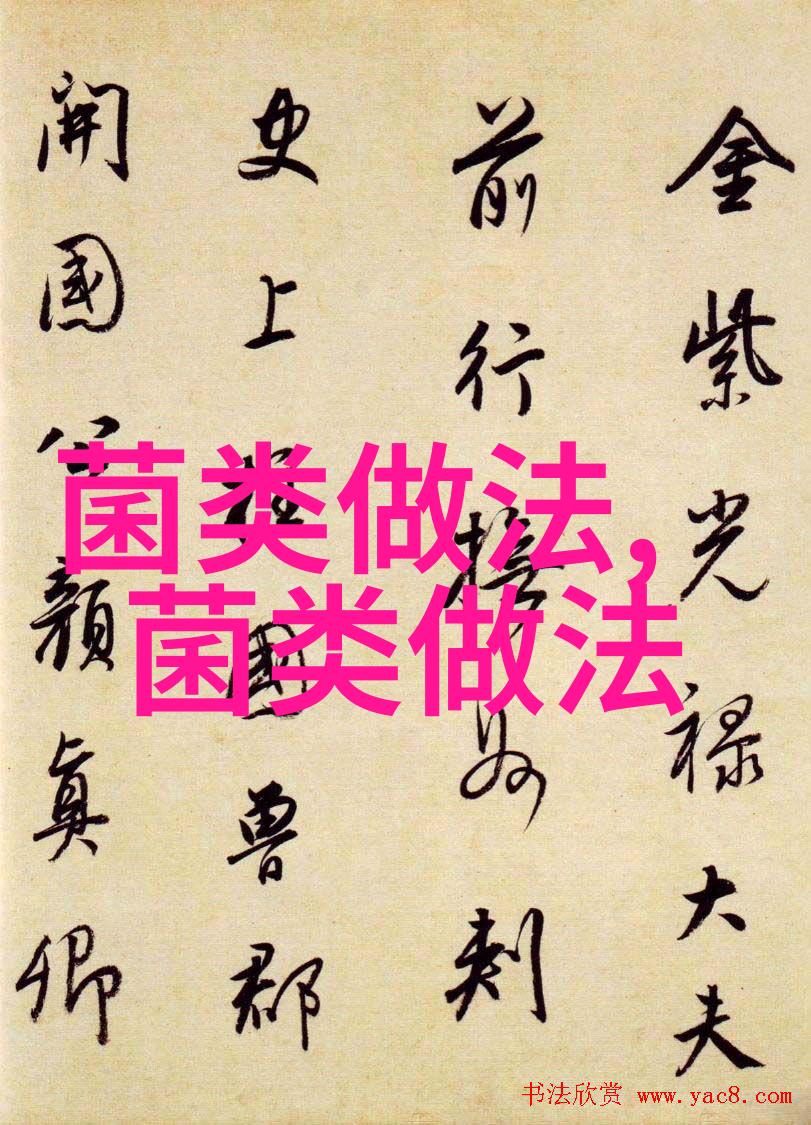 金紫光禄大夫
前行撫州刺
史上柱國魯郡
開國公顔真卿
菌类做法,
菌类做法
书法欣赏 www.yac8.com